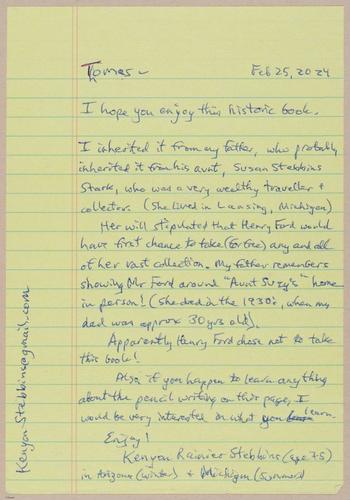 Thomas - Feb 25, 2024
I hope you enjoy this historic book.
I inherited it from my father, who probably
inherited it from his aunt, Susan Stebbins
Stark, who was a very wealthy traveller &
collector. (She lived in Lansing, Michigan)
Her will stipulated that Henry Ford would
have first chance to take (for free) any and all
of her vast collection. My father remembers
showing Mr Ford around "Aunt Suzy's" home
in person! (She died in the 1930's, when my
dad was approx 30 yrs old).
Apparently Henry Ford chose not to take
this book!
Also, if you happen to learn anything
about the pencil writing on this page, I
would be very interested in what you learn.
Enjoy!
Kenyon Rainier Stebbins (age 75)
in Arizona (winter) & Michigan (summer)
Kenyon.Stebbins@gmail.com